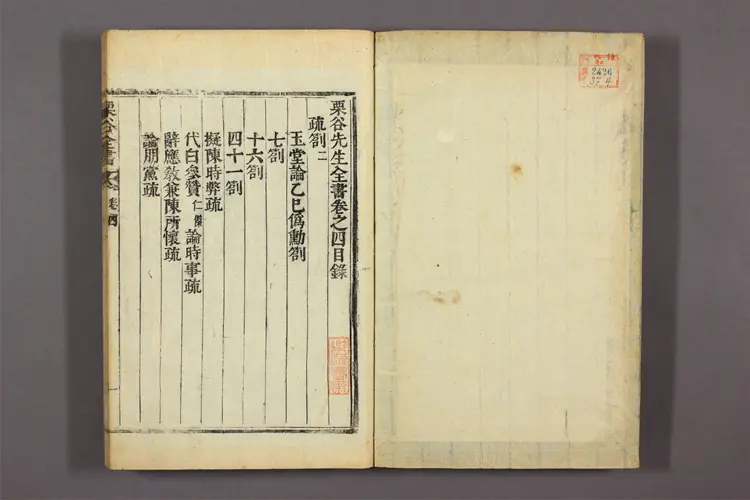 2426
37 4
栗谷先生全書卷之四目錄
疏劄二
玉堂論乙巳僞勳劄
七劄
十六劄
四十一劄
擬陳時弊疏
代白參贊仁傑論時事疏
辭應敎兼陳所懷疏
論朋黨疏
栗谷全書 卷四